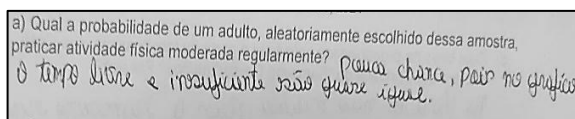 a) Qual a probabilidade de um adulto, aleatoriamente escolhido dessa amostra,
praticar atividade física moderada regularmente? pouca chance, pois no grafico
o tempo livre e insuficiente são quase iguse.